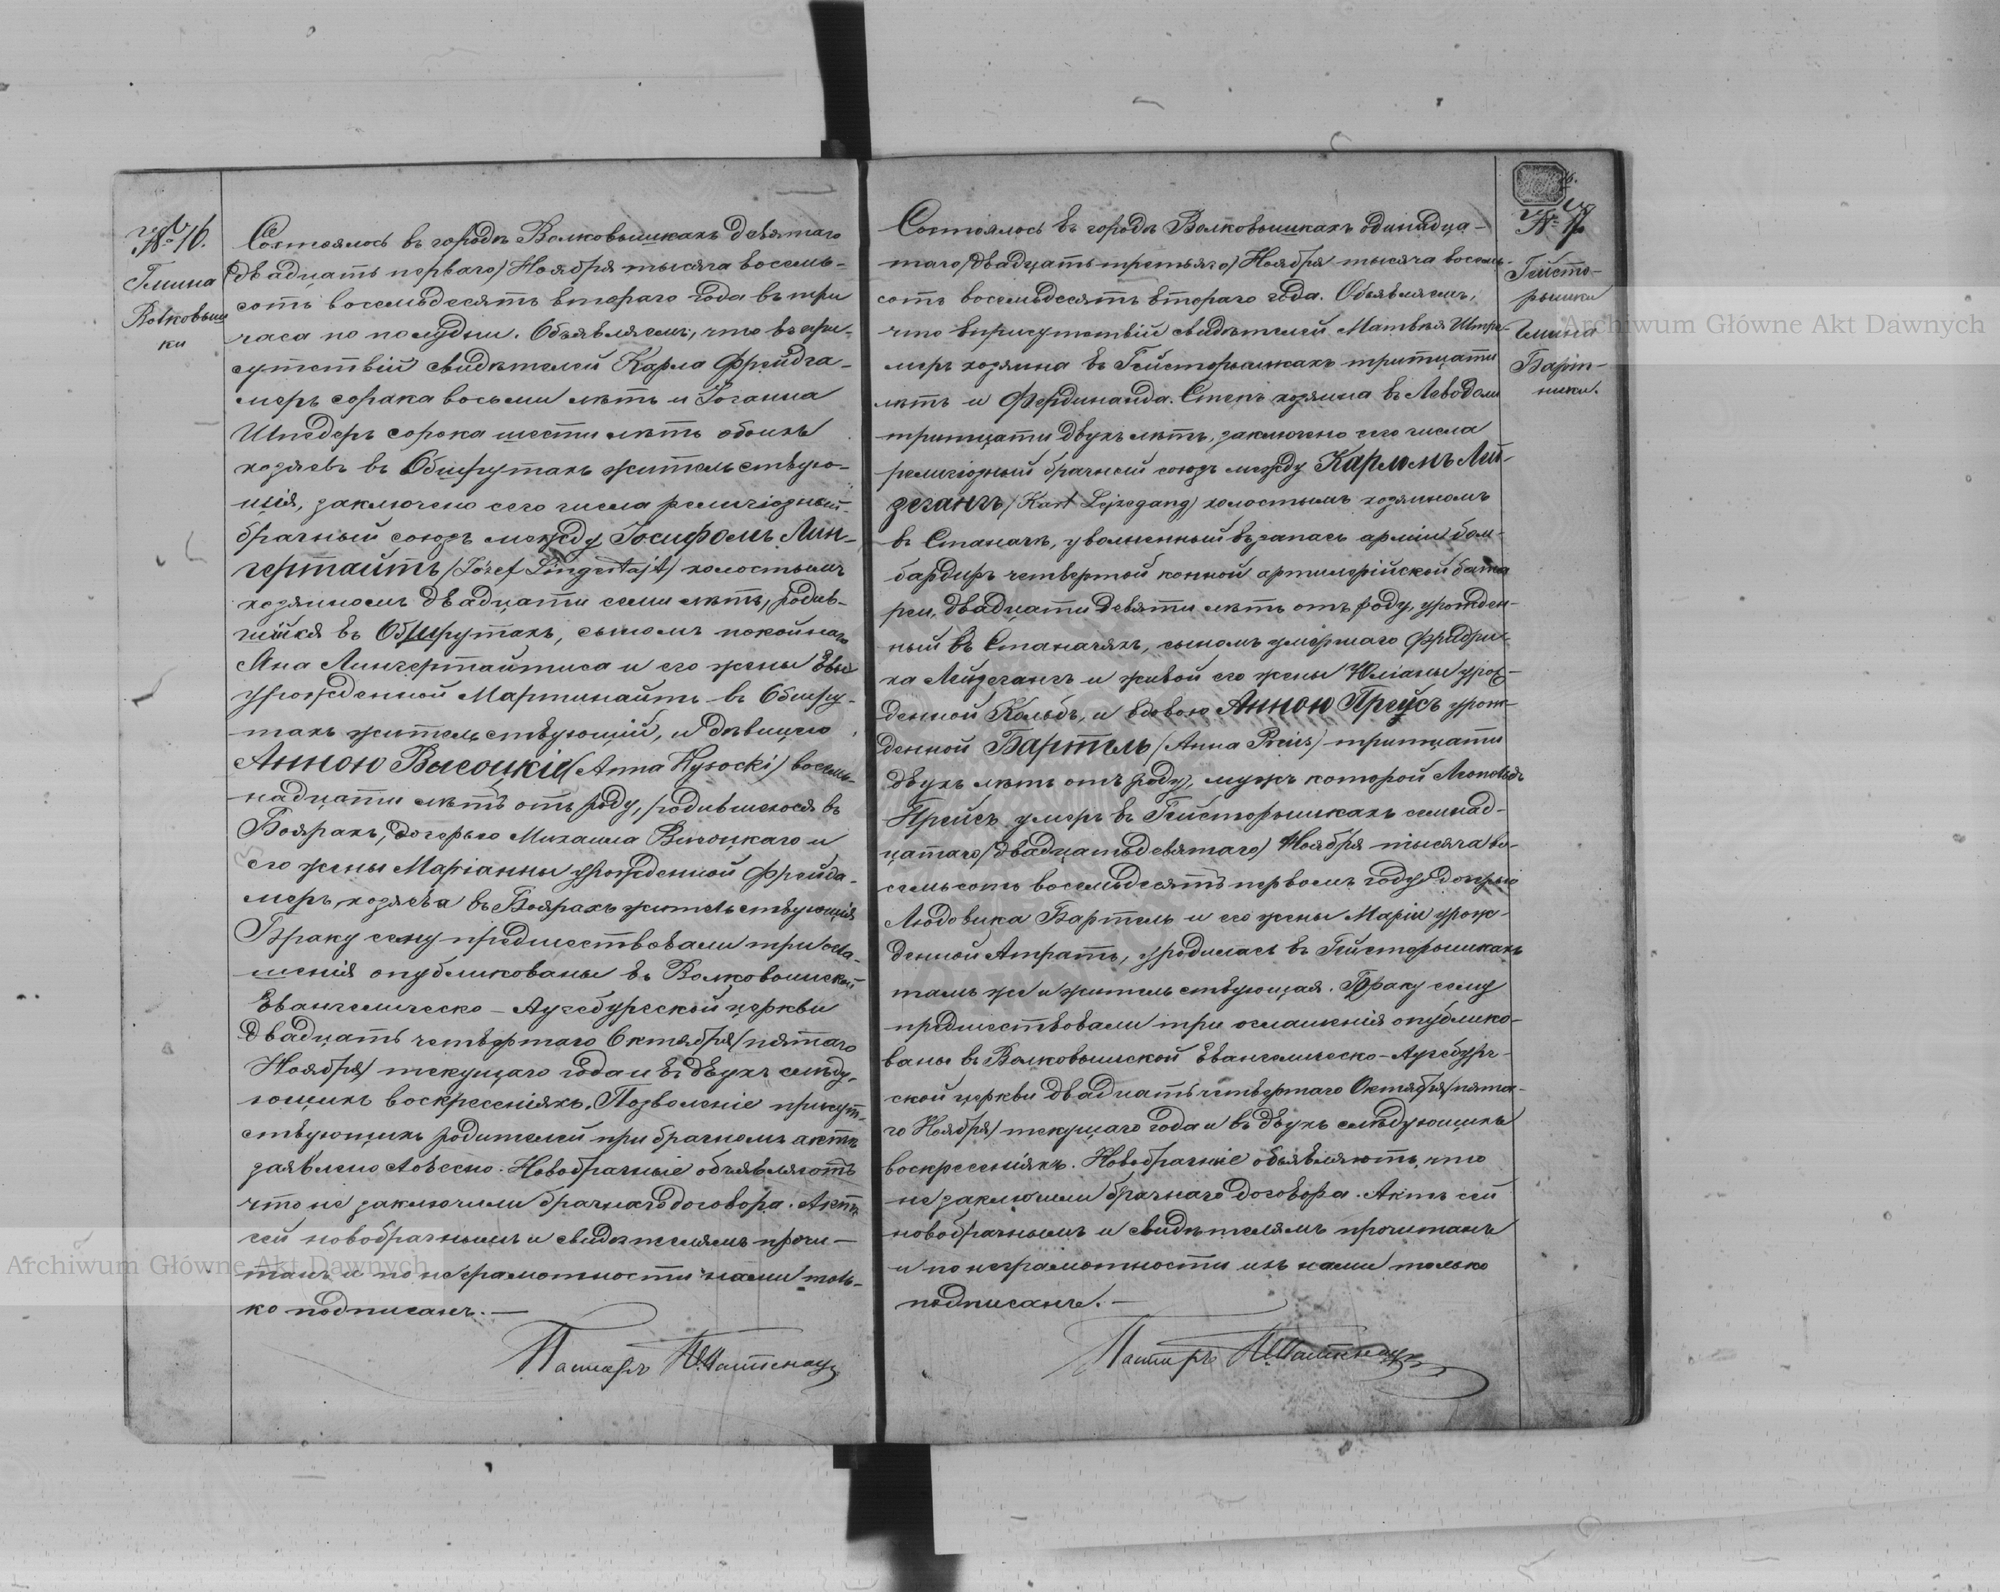 № 76.
Гмина
Волковыш
ки
Состоялось въ городѣ Волковышкахъ девятаго
(двадцать перваго) Ноября тысяча восемь-
сотъ восемьдесятъ втораго года въ три
часа по полудни. Объявляемъ, что въ при-
сутствіи свидѣтелей Карла Фрейдга-
меръ сорока восьми лѣтъ и Іоганна
Шнедеръ сорока шести лѣтъ обоихъ
хозяевъ въ Обшрутахъ жительствую-
щія, заключено сего числа религіозный
брачный союзъ между Іосифомъ Лин-
гертайтъ (Józef Lingertajt) холостымъ
хозяиномъ двадцати семи лѣтъ, родив-
шійся въ Обшрутахъ, сыномъ покойнаго
Яна Лингертайтиса и его жены Евы
урожденной Мартинайтъ въ Обшру-
тахъ жительствующій, и дѣвицею
Анною Высоцкіе (Anna Wysocki) восем-
надцати лѣтъ отъ роду, родившеюся въ
Боярахъ, дочерью Михаила Височкаго и
его жены Маріанны урожденной Фрейда-
меръ, хозяева въ Боярахъ жительствующія
Браку сему предшествовали три огла-
шенія опубликованы въ Волковышской
Евангелическо-Аугсбургской церкви
двадцать четвертаго Октября (пятаго
Ноября) текущаго года и въ двухъ слѣду-
ющихъ воскресеніяхъ. Позволеніе присут-
ствующихъ родителей при брачномъ актѣ
заявлено словесно. Новобрачные объявляютъ
что не заключили брачнаго договора. Актъ
сей новобрачнымъ и свидѣтелямъ прочи-
танъ и по неграмотности нами толь-
ко подписанъ.—
Пасторъ
№ 77
Гейсто-
ришки
Гмина
Барт-
ники.
Состоялось въ городѣ Волковышкахъ одинадца-
таго (двадцать третьяго) Ноября тысяча восемь-
сотъ восемьдесятъ втораго года. Объявляемъ,
что въ присутствіи свидѣтелей Матвѣя Штре-
меръ хозяина въ Гейсторышкахъ тритцати
лѣтъ и Фердинанда Степъ хозяина въ Лѣводоли
тритцати двухъ лѣтъ, заключено сего числа
религіозный брачный союзъ между Карломъ Лей-
зегангъ (Karl Lejzegang) холостымъ хозяиномъ
въ Станачкъ, уволненный въ запасъ арміи бом-
бардиръ четвертой конной артилерійской бата
реи, двадцати девяти лѣтъ отъ роду, урожден-
ный въ Станачяхъ, сыномъ умершаго Фридри-
ха Лейзегангъ и живой его жены Юліаны урож-
денной Кольбъ, и вдовою Анною Прейсъ урож-
денной Бартель (Anna Preis) тритцати
двухъ лѣтъ отъ роду, мужъ которой Леопольдъ
Прейсъ умеръ въ Гейсторышкахъ семнад-
цатаго (двадцатьдевятаго) Ноября тысяча во-
семьсотъ восемьдесятъ первомъ году дочерью
Людовика Бартель и его жены Маріи урож-
денной Атратъ, уродилась въ Гейсторышкахъ
тамъ же и жительствующая. Браку сему
предшествовали три оглашенія опублико-
ваны въ Волковышской Евангелическо-Аугсбург-
ской церкви двадцать четвертаго Октября (пята-
го Ноября) текущаго года и въ двухъ слѣдующихъ
воскресеніяхъ. Новобрачные объявляютъ что
не заключили брачнаго договора. Актъ сей
новобрачнымъ и свидѣтелямъ прочитанъ
и по неграмотности ихъ нами только
подписанъ.—
Пасторъ
Archiwum Główne Akt Dawnych
Archiwum Główne Akt Dawnych